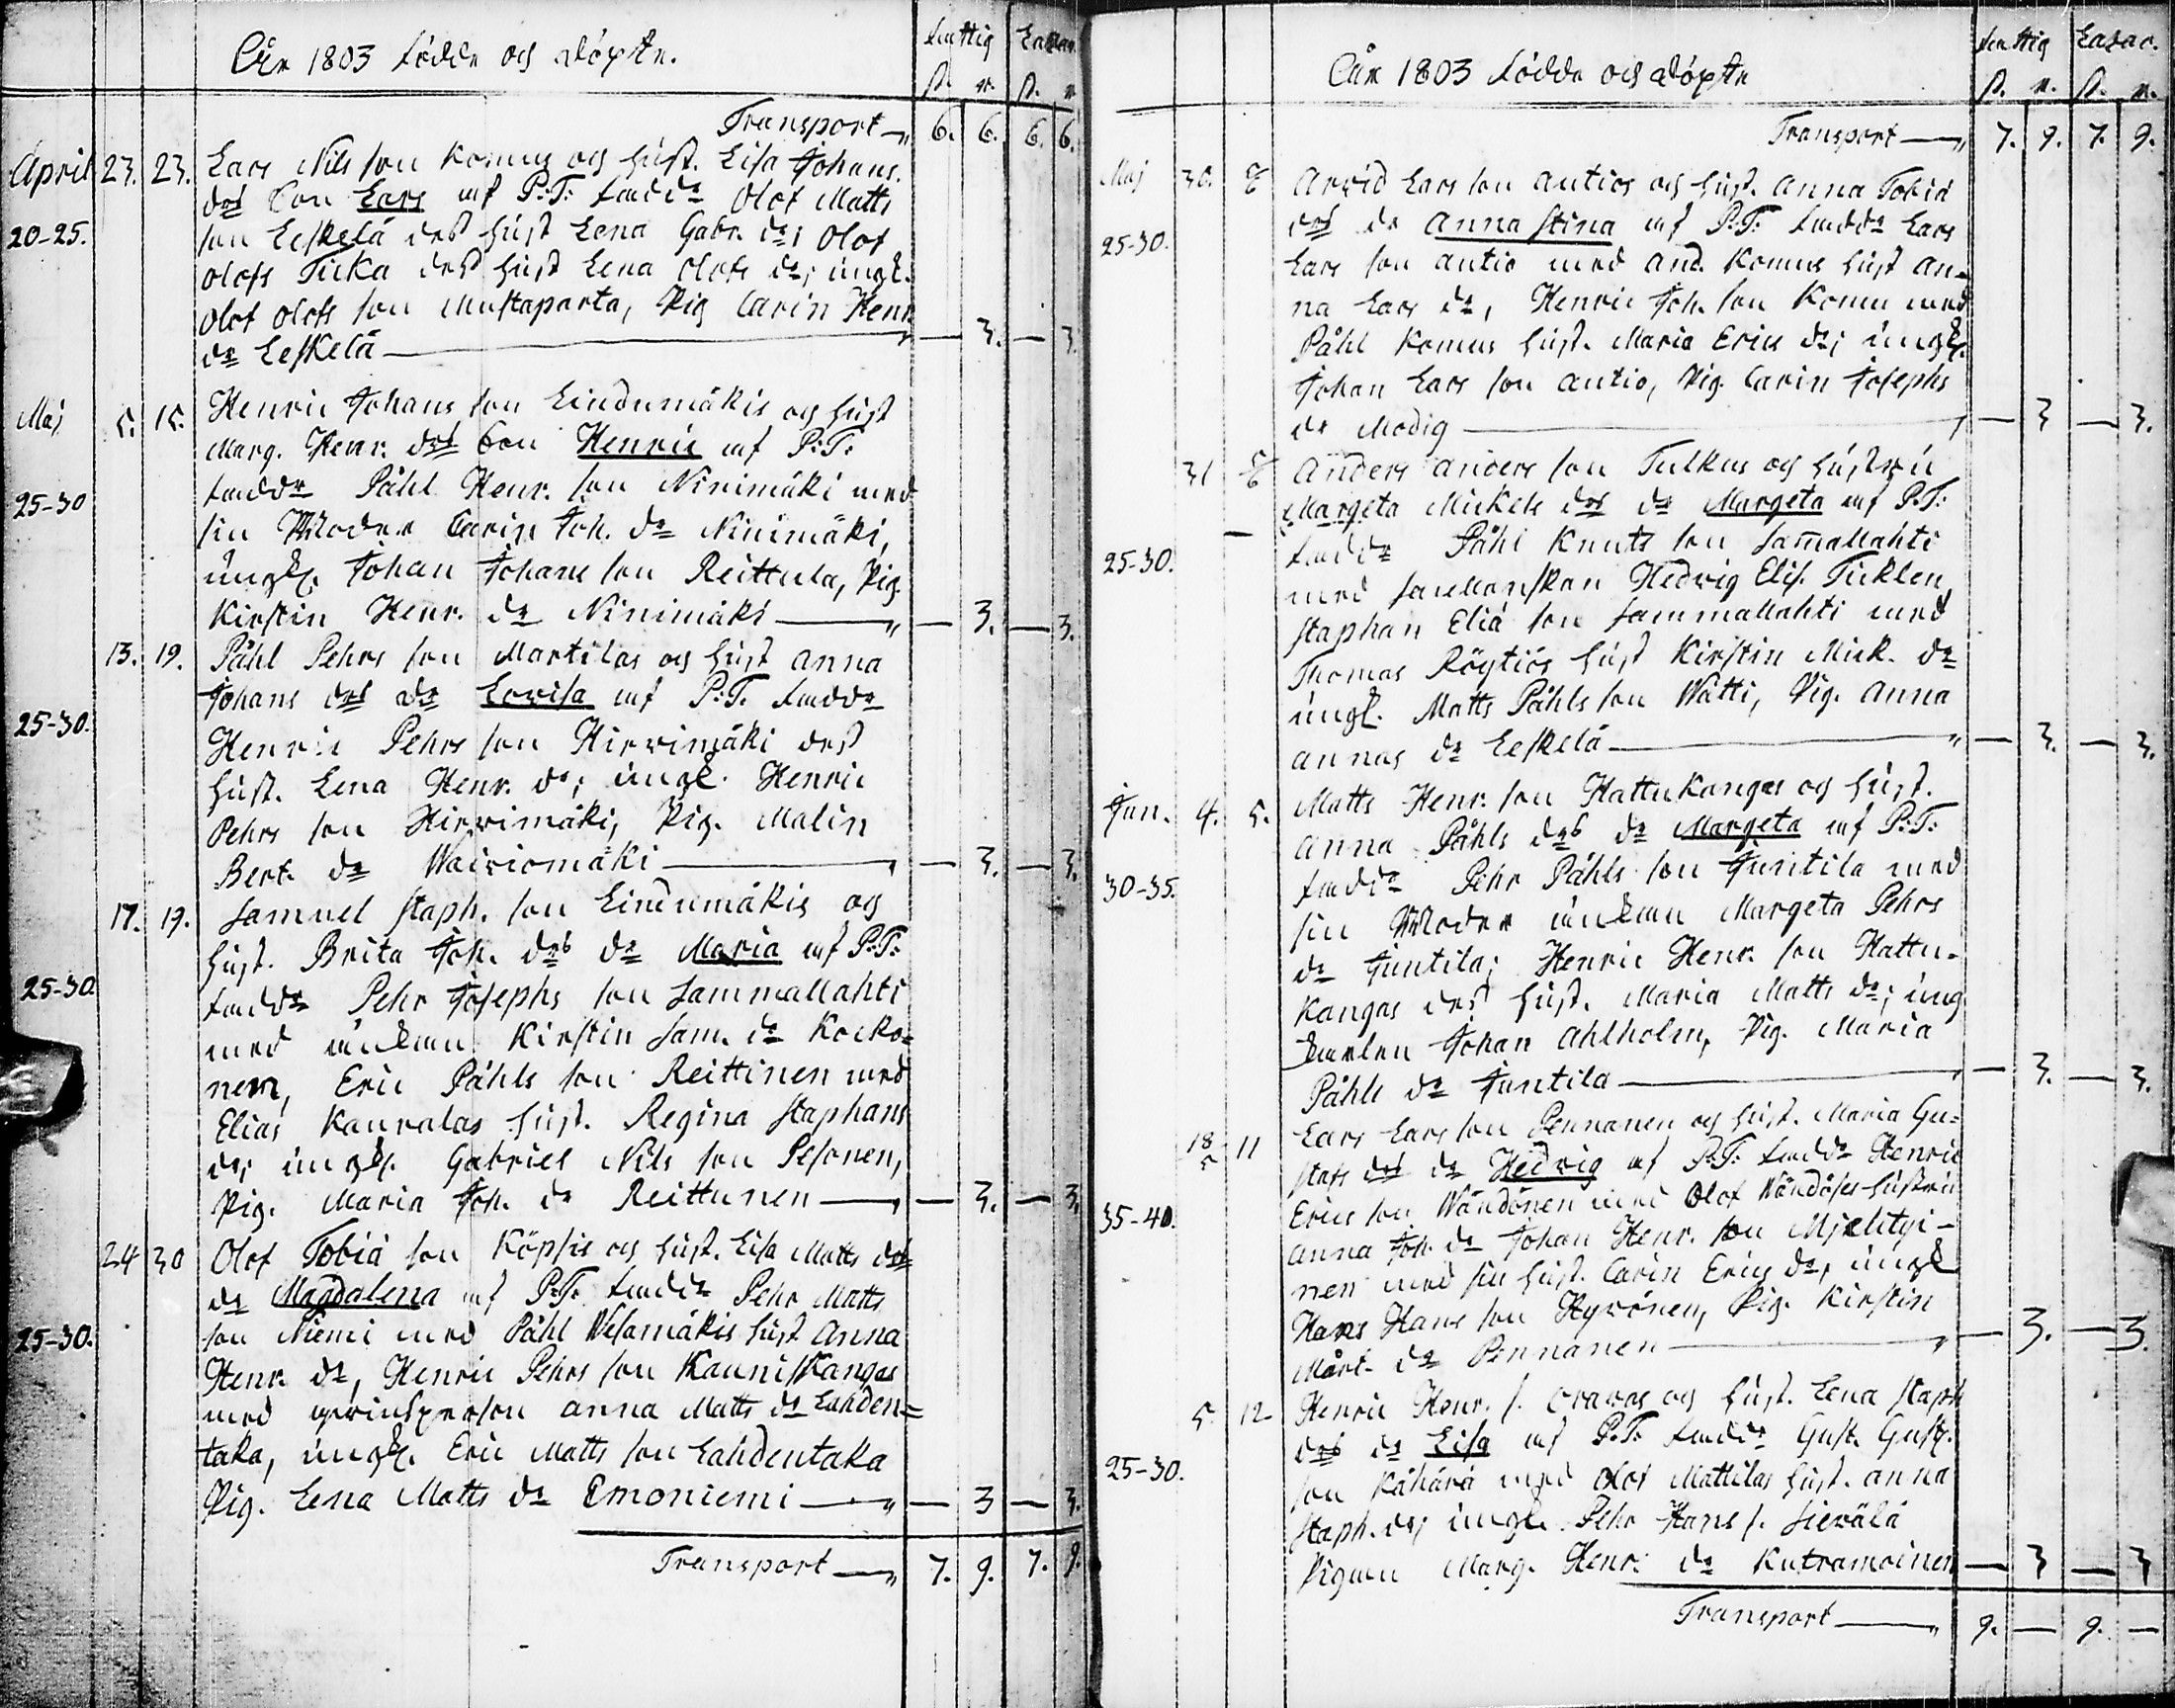 År 1803 födde och döpte.
fattig Lazar.
ß. r. ß. r.
Transport — 6. 6. 6. 6.
April 23. 23. Lars Nils son Komus och hust. Lisa Johans
drs Son Lars af P:T: faddr Olof Matts
20-25. son Leskelä dess hust Lena Gabr. dr; Olof
Olofs Ticka dess hust Lena Olofs dr; ungk.
Olof Olofs son Mustaparta, Pig Carin Henr
dr Leskelä — 3. — 3.
Maj 5. 15. Henric Johans son Lindumäkis och hust
Marg. Henr. drs Son Henric af P:T:
25-30 faddr Påhl Henr. son Ninimäki med
sin Moder Carin Joh. dr Ninimäki,
ungk. Johan Johans son Reittula, Pig.
Kirstin Henr. dr Ninimäki — 3. — 3.
13. 19. Påhl Pehrs son Martilas och hust Anna
Johans drs dr Lovisa af P:T. faddr
25-30. Henric Pehrs son Hirvimäki dess
hust. Lena Henr. dr; ungk. Henric
Pehrs son Hirvimäki, Pig. Malin
Bert. dr Waiviomäki — 3. — 3.
17. 19. Samuel Staph. son Lindumäkis och
hust. Brita Joh. drs dr Maria af P:T:
25-30. faddr Pehr Josephs son Sammallahti
med änkan Kirstin Sam. dr Kocko=
nen, Eric Påhls son Reittinen med
Elias Kauralas hust. Regina Staphans
dr; ungk. Gabriel Nils son Pesonen,
Pig. Maria Joh. dr Reittunen — 3. — 3.
24 30 Olof Tobiä son Köpsis och hust. Lisa Matts drs
dr Magdalena af P:T: faddr Pehr Matts
25-30. son Niemi med Påhl Wesamäkis hust Anna
Henr. dr, Henric Pehrs son Kauniskangas
med qvinsperson Anna Matts dr Lahden=
taka, ungk. Eric Matts son Lahdentaka
Pig. Lena Matts dr Emoniemi — 3 — 3.
Transport — 7. 9. 7. 9.
År 1803 födde och döpte
fattig Lazar.
ß. r. ß. r.
Transport — 7. 9. 7. 9.
Maj 30. Arvid Lars son Antios och hust. Anna Tobiä
drs dr Anna Stina af P:T: faddr Lars
25-30. Lars son Antio med And. Komus hust An-
na Lars dr, Henric Joh. son Komu med
Påhl Komus hust. Maria Erics dr; ungk.
Johan Lars son Antio, Pig. Carin Josephs
dr Modig — 3 — 3.
31 Anders Anders son Tulkus och hustru
Margeta Mickels drs dr Margeta af P:T:
25-30. faddr Påhl Knuts son Samallahti
med Hedvig Elis. Ticklen,
Staphan Eliä son Sammallahti med
Thomas Röytiös hust Kirstin Mick. dr
ungk. Matts Påhls son Watti, Pig. Anna
Annas dr Leskelä — 3. — 3.
Jun. 4. 5. Matts Henr. son Hattukangas och hust.
Anna Påhls drs dr Margeta af P:T:
30-35. faddr Pehr Påhls son Juntila med
sin Moder änkan Margeta Pehrs
dr Juntila; Henric Henr. son Hattu-
kangas dess hust. Maria Matts dr; ung
karlen Johan Ahlholm, Pig. Maria
Påhls dr Juntila — 3. — 3.
18/5 11 Lars Lars son Pennanen och hust. Maria Gu=
stafs drs dr Hedvig af P:T: faddr Henric
35-40. Erics son Wändönen med Olof Wändöses hustru
Anna Joh. dr Johan Henr. son Mjelityi-
nen med sin hust. Carin Erics dr, ungk
Hans Hans son Hyvönen, Pig. Kirstin
Mårt. dr Pennanen — 3. — 3.
5. 12 Henric Henr. s. Oravas och hust. Lena Staph
drs dr Lisa af P:T: faddr Gust. Gust.
25-30. son Kähärä med Olof Mattilas hust. Anna
Staph. dr; ungk. Pehr Hans s. Sierälä
Pigan Marg. Henr. dr Kutramoinen — 3 — 3
Transport — 9. — 9. —